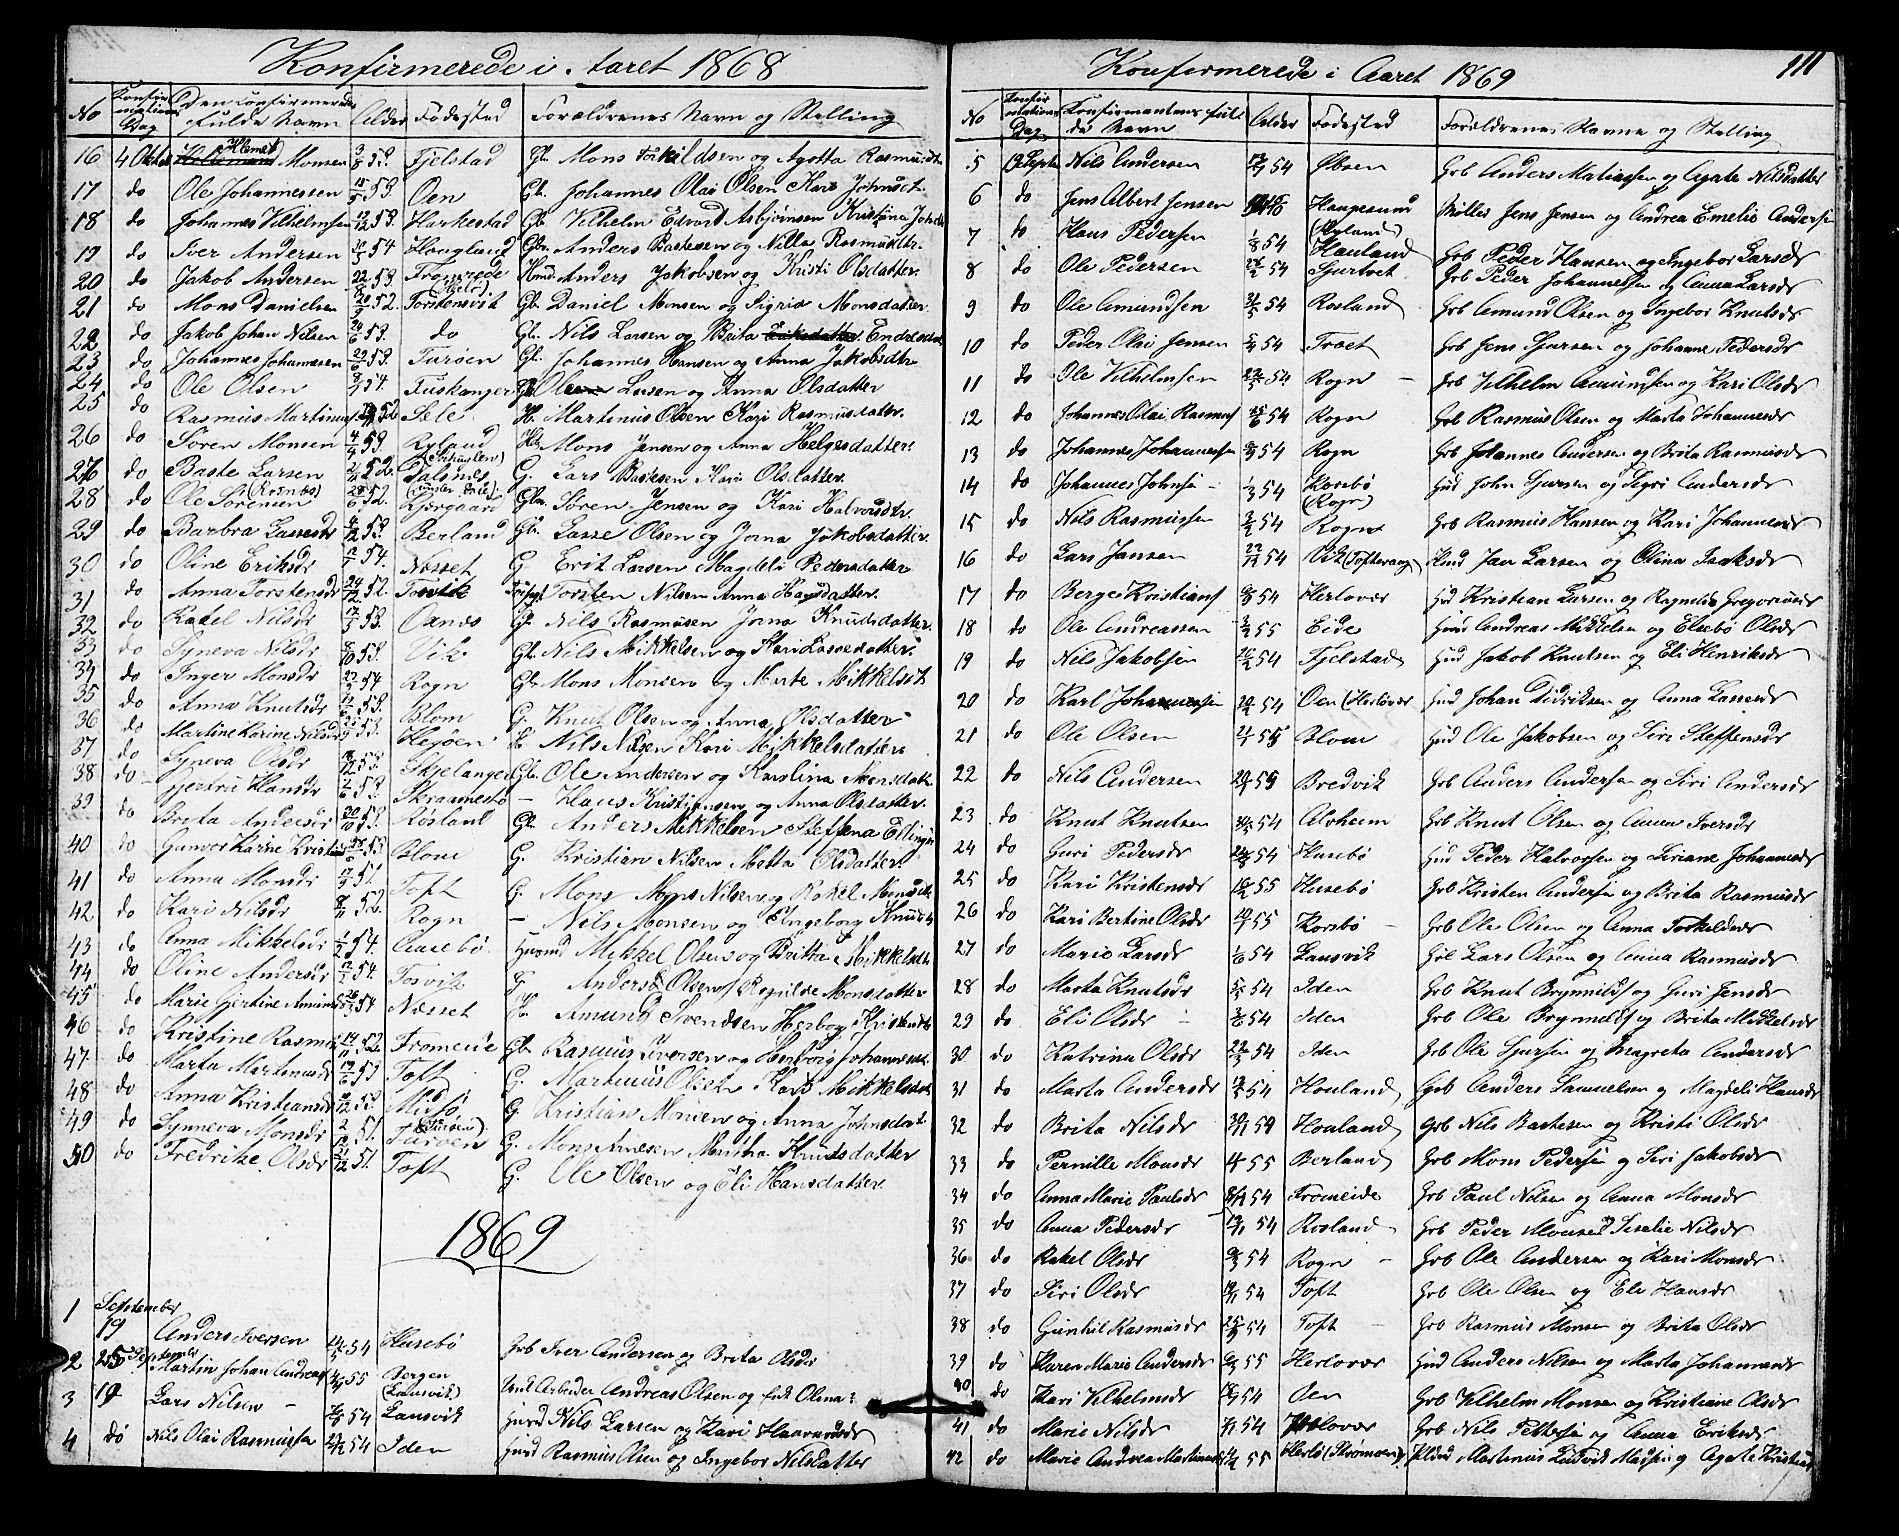 Konfirmerede i Aaret 1868
No Konfirmations Dag Den Confirmeredes fulde Navn Alder Fødested Forældrenes Navn og Stilling
16 4 Oktob Monsen Fjelstad Gb. Mons Torkildsen og Agotta Rasmusdtr
17 do Ole Johannessen 53 Oen Gb. Johannes Olai Olsen Kari Johnsdtr
18 do Johannes Vilhelmsen 53 Harkestad Gb Vilhelm Edvard Asbjørnsen Kristina
19 do Iver Andersen 54 Hougland Gbr Anders Bastesen og Nille Rasmusdtr
20 do Jakob Andersen 53 Fromrede Hmd Anders Jakobsen og Kristi Olsdatter
21 do Mons Danielsen 52 (Melø) Torstensvik Gb Daniel Monsen og Sigrid Monsdatter
22 do Jakob Johan Nilsen 53 do Gb. Nils Larsen og Brita
23 do Johannes Johannesen 29/6 53 Turøen Gb. Johannes Hansen og Anna Jakobsdtr
24 do Ole Olsen 54 Tuskanger Gb Larsen og Anna Olsdatter
25 do Rasmus Martinus 52 Sele Hr. Martinus Olsen Kari Rasmusdatter
26 do Søren Monsen 4/4 53 Ryland Mons Jensen og Anna Helgesdatter
27 do Baste Larsen 52 Dalsnes G. Lars Bastesen Kari Olsdatter
28 do Ole Sørensen 52 Kjærgaard Gbr Søren Jensen og Kari Halvorsdtr.
29 do Barbra Lassesdr 53 Berland Gb. Lasse Olsen og Jorna Jakobsdatter
30 do Oline Eriksdr 54 Næsset G Erik Larsen Magdeli Pedersdatter
31 do Anna Torstensdr 24/12 52 Tosvik Torsten Nilsen Anna Hansdatter
32 do Rakel Nilsdr 53 Oanes Gb. Nils Rasmusen Jorna Knudsdatter
33 do Syneva Nilsdr 8/10 53 Vik Gb. Nils Mikkelsen og Kari Lassesdatter
34 do Inger Monsdr 54 Rogn Gb. Mons Monsen og Marte Mikkelsdt
35 do Anna Knutsdr 53 Blom G. Knut Olsen og Anna Olsdatter
36 do Martine Karine Nilsdr 53 Hejøen Nils Nilsen Kari Mikkelsdatter
37 do Syneva Olsdr 53 Skjelanger Gb. Ole Andersen og Karolina Monsdatter
38 do Gjertru Hansdr 53 Skraamestø – Hans Kristiansen og Anna Olsdatter
39 do Brita Andersdr 20/10 53 Rosland Gb Anders Mikkelsen Steffena
40 do Gunvor Karine 53 Blom G. Kristian Nilsen Metta Olsdatter
41 do Anna Monsdr 51 Toft G. Mons Nilsen og Rakel
42 do Kari Nilsdr 8/11 52 Rogn – Nils Monsen og Ingeborg
43 do Anna Mikkelsdr 1/2 54 Aarebø Mikkel Olsen og Britta Mikkelsdtr
44 do Oline Andersdr 54 Tosvik G Anders Olsen Rognilde Monsdatter
45 do Marie Gjertine 54 Næsset Amund Svendsen Herborg
46 do Kristine Rasmus 14/11 52 Fromeide Gb Rasmus Iversen og Herborg Johannesdtr
47 do Marta Martinusdr 53 Toft G. Martinus Olsen Kari Mikkelsdt
48 do Anna Kristiansdr 53 Misjø G. Kristian Monsen og Anna Johnsdat
49 do Synneva Monsdr 51 Turøen G. Mons Arnesen Martha Knutsdatter
50 do Fredrike Olsdr 51 Toft G. Ole Olsen og Eli Hansdatter
1869
1 September 19 Anders Iversen 54 Husebø Grb Iver Andersen og Brita Olsdr
2 25 September Martin Johan Andreas 55 Bergen Arbeider Andreas Olsen og Enk Olina
3 19 Lars Nilsen – 54 (Lansvik) Lansvik Husd Nils Larsen og Kari
4 do Nils Olai Rasmussen 54 Iden Husd Rasmus Olsen og Ingebor Nilsdatter
Konfirmerede i Aaret 1869 111
No Konfirmationens Dag Konfirmantens fulde Navn Alder Fødested Forældrenes Navne og Stilling
5 19 Septbr Nils Andersen 54 Øksen Grb Anders Matiassen og Agate Nilsdatter
6 do Jens Albert Jensen Haugesund Møller Jens Jensen og Andrea Emelie Andersen
7 do Hans Pedersen 54 (Ryland) Hauland Grb Peder Hansen og Ingebor Larsdr
8 do Ole Pedersen 54 Gjertvet Grb Peder Johannessen og Anna Larsdr
9 do Ole Amundsen 54 Rosland Grb Amund Olsen og Ingebor Knutsdr
10 do Peder Olai Jensen 54 Træet Grb Jens Sjursen og Johanne Pedersdr
11 do Ole Vilhelmsen 54 Rogn – Grb Vilhelm Amundsen og Kari Olsdr
12 do Johannes Olai Rasmuss 54 Rogn Grb Rasmus Olsen og Marta Johannesdr
13 do Johannes Johannessen 54 Rogn Grb Johannes Andersen og Brita Rasmusdr
14 do Johannes Johnsen – 54 Korsbø Hud John Sjursen og Sigri Andersdr
15 do Nils Rasmussen 54 (Rogn) Rogn Grb Rasmus Hansen og Kari Johannesdr
16 do Lars Jansen 54 Vik (Toftevaag) Husd Jan Larsen og Olina Isaksdr
17 do Berge Kristians 54 Herlovær Hud Kristian Larsen og Ragnilda Gregoriusdr
18 do Ole Andreassen 55 Eide Husd Andreas Mikkelsen og Elsebø Olsdr
19 do Nils Jakobsen 54 Fjelstad Hud Jakob Knutsen og Eli Henriksdr
20 do Karl Johannessen 54 Oen (Herlovær Hud Johan Didriksen og Anna Lassesdr
21 do Ole Olsen 55 Blom Hud Ole Jakobsen og Siri Steffensdr
22 do Nils Andersen 55 Bredvik Grb Anders Andersen og Siri Andersdr
23 do Knut Knutsen 54 Alvheim Grb Knut Olsen og Anna Iversdr
24 do Guri Pedersdr 54 Husebø Hud Peder Halvorsen og Siriane Johannesdr
25 do Kari Kristensdr 55 Husebø Grb Kristen Andersen og Brita Rasmusdr
26 do Kari Bertine Olsdr 55 Korsbø – Grb Ole Olsen og Anna Torkildsdr
27 do Marie Larsdr 54 Lansvik Grb Lars Olsen og Anna Rasmusdr
28 do Marta Knutsdr 54 Iden Grb Knut Brynnilds og Guri Jensdr
29 do Eli Olsdr – 54 Iden Grb Ole Brynnilds og Brita Mikkelsdr
30 do Katrina Olsdr 54 Iden Grb Ole Sjursen og Magreta Andersdr
31 do Marta Andersdr 54 Houland Grb Anders Samuelsen og Magdeli Hansdr
32 do Brita Nilsdr Houland Grb Nils Bastesen og Kristi Olsdr
33 do Pernille Monsdr 55 Berland Grb Mons Pedersen og Siri Jakobsdr
34 do Anna Marie Paulsdr 54 Fromeide Grb Paul Nilsen og Anna Monsdr
35 do Anna Pedersdr 54 Rosland Grb Peder Monsen Nilsdr
36 do Rakel Olsdr 54 Rogn – Grb Ole Andersen og Kari Monsdr
37 do Siri Olsdr 54 Toft Grb Ole Olsen og Eli Hansdr
38 do Gunhil Rasmusdr 54 Toft – Grb Rasmus Monsen og Brita Olsdr
39 do Karen Marie Andersdr 55 Herlovær Hud Anders Nilsen og Marta Johannesdr
40 do Kari Vilhelmsdr 54 Oen Grb Vilhelm Monsen og Kristiane Olsdr
41 do Marie Nilsdr 54 Herlovær Grb Nils Pettersen og Anna Eriksdr
42 do Marie Andrea Martinusdr 55 Herlø (Strømøen) Martinus Ludvik Madsen og Agate